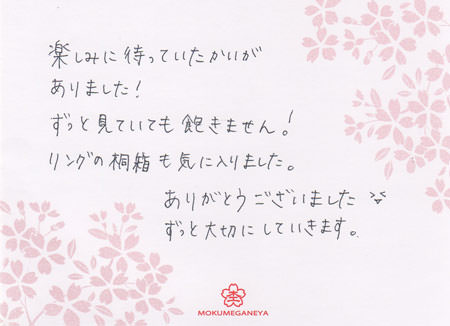 楽しみに待っていたかいが
ありました!
ずっと見ていても飽きません!
リングの桐箱も気に入りました。
ありがとうございました
ずっと大切にしていきます。
MOKUMEGANEYA